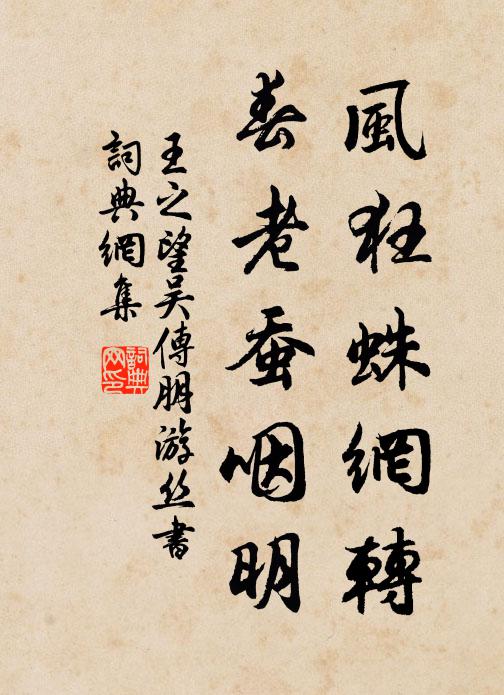 風狂蛛網轉
春老蚕咽明
王之望吴傅朋游丝書
詞典網集
詞典网印